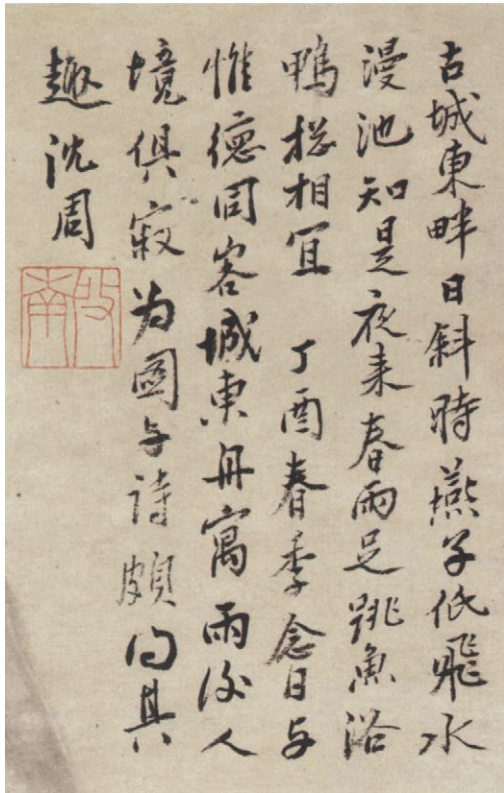 古城東畔日斜時燕子低飛水
漫池知是夜来春雨足跳魚浴
鴨揔相宜 丁酉春季念日与
惟德同客城東舟寓雨後人
境俱寂为圖与詩頗得其
趣沈周
啟南